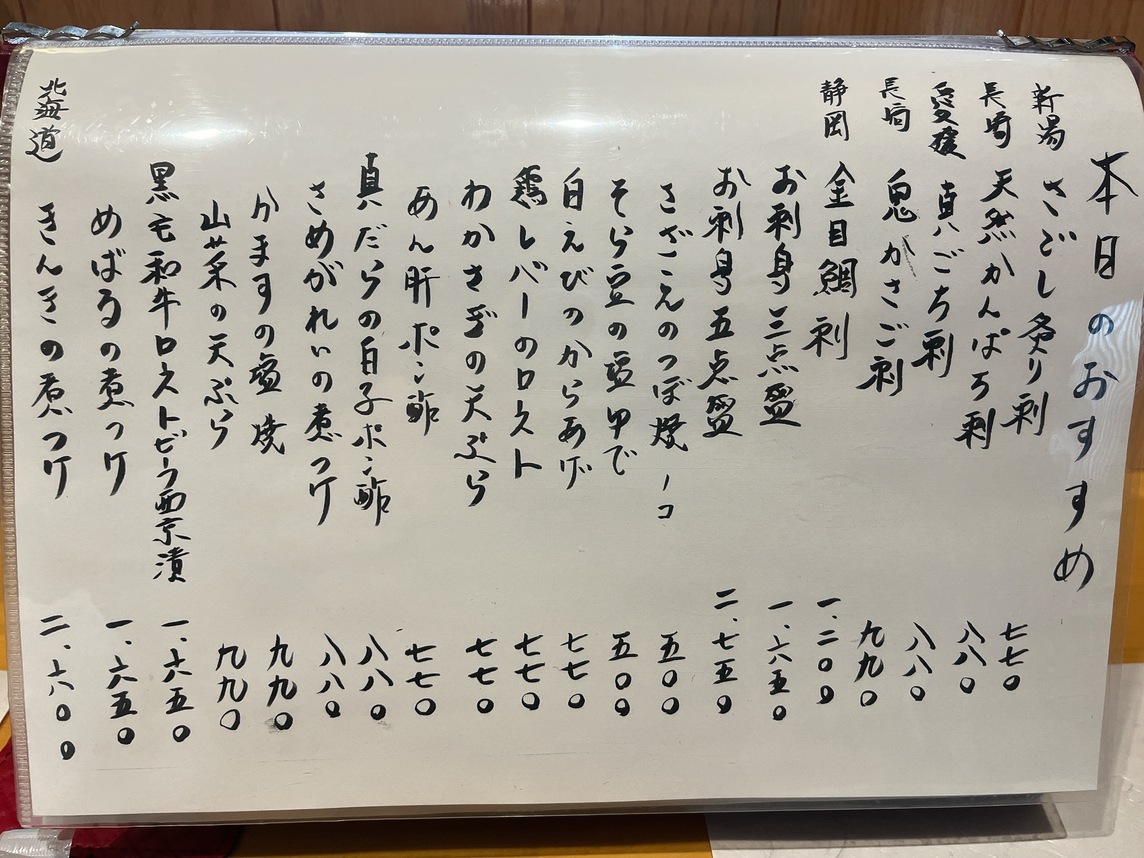 本日のおすすめ
新潟 さごし炙り刺 七七〇
長崎 天然かんぱち刺 八八〇
愛媛 真ごち刺 八八〇
長崎 鬼かさご刺 九九〇
静岡 金目鯛刺 一、二〇〇
お刺身三点盛 一、六五〇
お刺身五点盛 二、七五〇
さざえのつぼ焼 一コ 五〇〇
そら豆の塩ゆで 五〇〇
白えびのからあげ 七七〇
鶏レバーのロースト 七七〇
わかさぎの天ぷら 七七〇
あん肝ポン酢 七七〇
真だらの白子ポン酢 八八〇
さめがれいの煮つけ 八八〇
かますの塩焼 九九〇
山菜の天ぷら 九九〇
黒毛和牛ローストビーフ西京漬 一、六五〇
めばるの煮つけ 一、六五〇
北海道 きんきの煮つけ 二、六〇〇